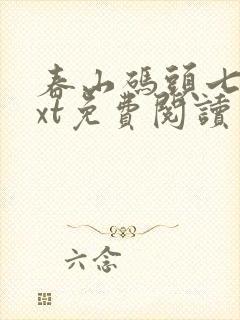 春山碼頭七
xt免費閱讀
六念